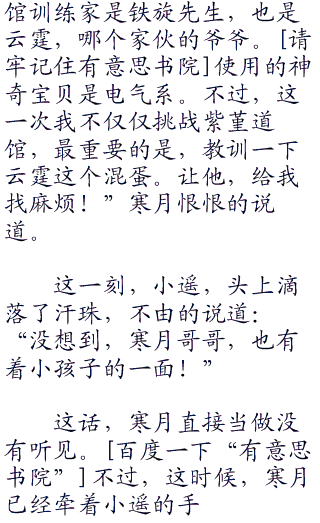 馆训练家是铁旋先生，也是
云霆，哪个家伙的爷爷。[请
牢记住有意思书院]使用的神
奇宝贝是电气系。不过，这
一次我不仅仅挑战紫堇道
馆，最重要的是，教训一下
云霆这个混蛋。让他，给我
找麻烦！”寒月恨恨的说
道。
这一刻，小遥，头上滴
落了汗珠，不由的说道：
“没想到，寒月哥哥，也有
着小孩子的一面！”
这话，寒月直接当做没
有听见。[百度一下“有意思
书院”]不过，这时候，寒月
已经牵着小遥的手